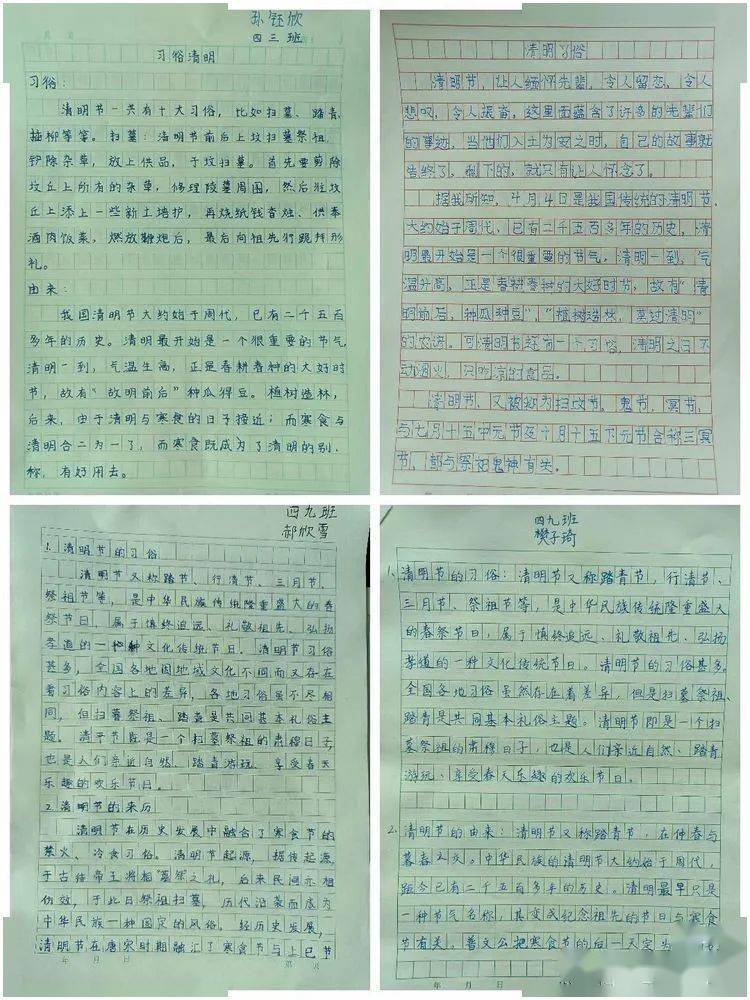 孙钰欣
四三班
习俗清明
习俗:
清明节一共有十大习俗,比如扫墓、踏青、
插柳等等。扫墓:清明节前后上坟扫墓祭祖,
铲除杂草,放上供品,于坟扫墓。首先要剪除
坟丘上所有的杂草,修理陵墓周围,然后往坟
丘上添上一些新土培护,再烧纸钱香烛、供奉
酒肉饭菜,燃放鞭炮后,最后向祖先行跪拜形
礼。
由来:
我国清明节大约始于周代,已有二千五百
多年的历史。清明最开始是一个很重要的节气
清明一到,气温生高,正是春耕春种的大好时
节,故有“故明前后”种瓜得豆。植树造林,
后来,由于清明与寒食的日子接近;而寒食与
清明合二为一了,而寒食既成为了清明的别、
称,有好用去。
清明习俗
清明节,让人缅怀先辈,令人留恋,令人
悲叹,令人振奋,这里面蕴含了许多的先辈们
的事迹,当他们入土为安之时,自己的故事就
告终了,剩下的,就只有让人怀念了。
据我所知,4月4日是我国传统的清明节、
大约始于周代、已有二千五百多年的历史,清
明最开始是一个很重要的节气,清明一到,气
温升高,正是春耕春种的大好时节,故有“清
明前后,种瓜种豆”,“植树造林,莫过清明”
的农谚。可清明节还有一个习俗,清明之日不
动烟火,只吃凉的食品。
清明节、又被称为扫坟节、鬼节、冥节,
与七月十五中元节及十月十五下元节合称三冥
节,都与祭祀鬼神有关。
四九班
郝欣雪
1.清明节的习俗
清明节又称踏节、行清节、三月节、
祭祖节等,是中华民族传统隆重盛大的春
祭节日,属于慎终追远、礼敬祖先、弘扬
孝道的一种文化传统节日。清明节习俗
甚多,全国各地因地域文化不同而又存在
着习俗内容上的差异,各地习俗虽不尽相
同,但扫墓祭祖、踏青是共同基本礼俗主
题。清平节既是一个扫墓祭祖的肃穆日子,
也是人们亲近自然、踏青游玩、享受春天
乐趣的欢乐节日。
2.清明节的来历
清明节在历史发展中融合了寒食节的
禁火、冷食习俗。清明节起源,据传起源
于古代帝王将相“墓祭”之礼,后来民间亦相
仿效,于此日祭祖扫墓,历代沿袭而成为
中华民族一种固定的风俗。经历史发展,
清明节在唐宋时期融汇了寒食节与上巳节
年 月 日
四九班
樊子琦
1、清明节的习俗:清明节又称踏青节,行清节、
三月节、祭祖节等,是中华民族传统隆重盛大
的春祭节日,属于慎终追远、礼敬祖先、弘扬
孝道的一种文化传统节日。清明节的习俗甚多,
全国各地习俗虽然存在着差异,但是扫墓祭祖、
踏青是共同基本礼俗主题。清明节即是一个扫
墓祭祖的肃穆日子,也是人们亲近自然、踏青
游玩、享受春天乐趣的欢乐节日。
2.清明节的由来:清明节又称踏青节,在仲春与
暮春之交。中华民族的清明节大约始于周代,
距今已有二千五百多年的历史。清明最早只是
一种节气名称,其变成纪念祖先的节日与寒食
节有关。晋文公把寒食节的后一天定为
年 月 日